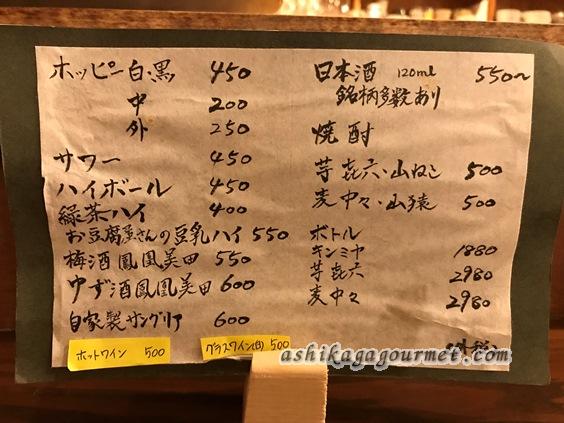 ホッピー白・黒 450
中 200
外 250
サワー 450
ハイボール 450
緑茶ハイ 400
お豆腐屋さんの豆乳ハイ 550
梅酒鳳凰美田 550
ゆず酒鳳凰美田 600
自家製サングリア 600
ホットワイン 500
グラスワイン(白) 500
日本酒 120ml 550〜
銘柄多数あり
焼酎
芋 㐂六・山ねこ 500
麦 中々・山猿 500
ボトル
キンミヤ 1880
芋 㐂六 2980
麦 中々 2980
外税
ashikagagourmet.com